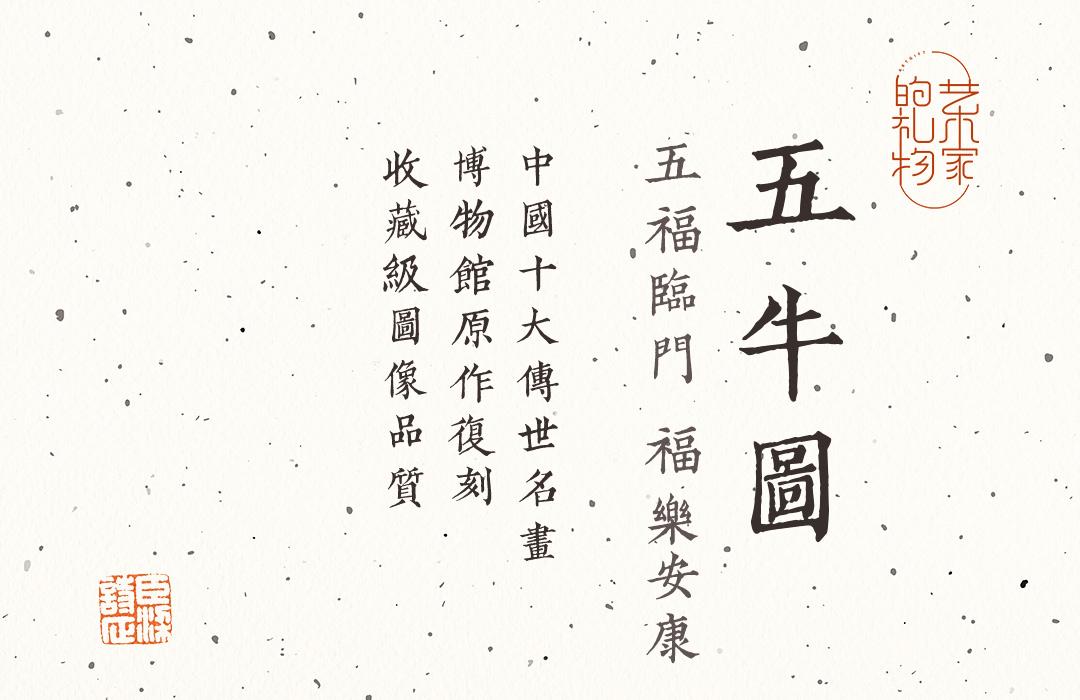 艺术家
的礼物
五牛圖
五福臨門 福樂安康
中國十大傳世名畫
博物館原作復刻
收藏級圖像品質